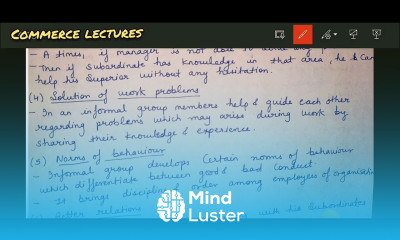 COMMERCE LECTURES
- A times, if manager is not able to
- Then if subordinate has knowledge in that area, he can
help his superior without any hasitation.
(4) Solution of work problems
- In an informal group members help & guide each other
regarding problems which may arise during work by
sharing their knowledge & experience.
(5) Norms of behaviour
- Informal group develops certain norms of behaviour
which differentiate between good & bad conduct.
- It brings discipline & order among employees of organisation
Better relations with his subordinates
Mind
Luster